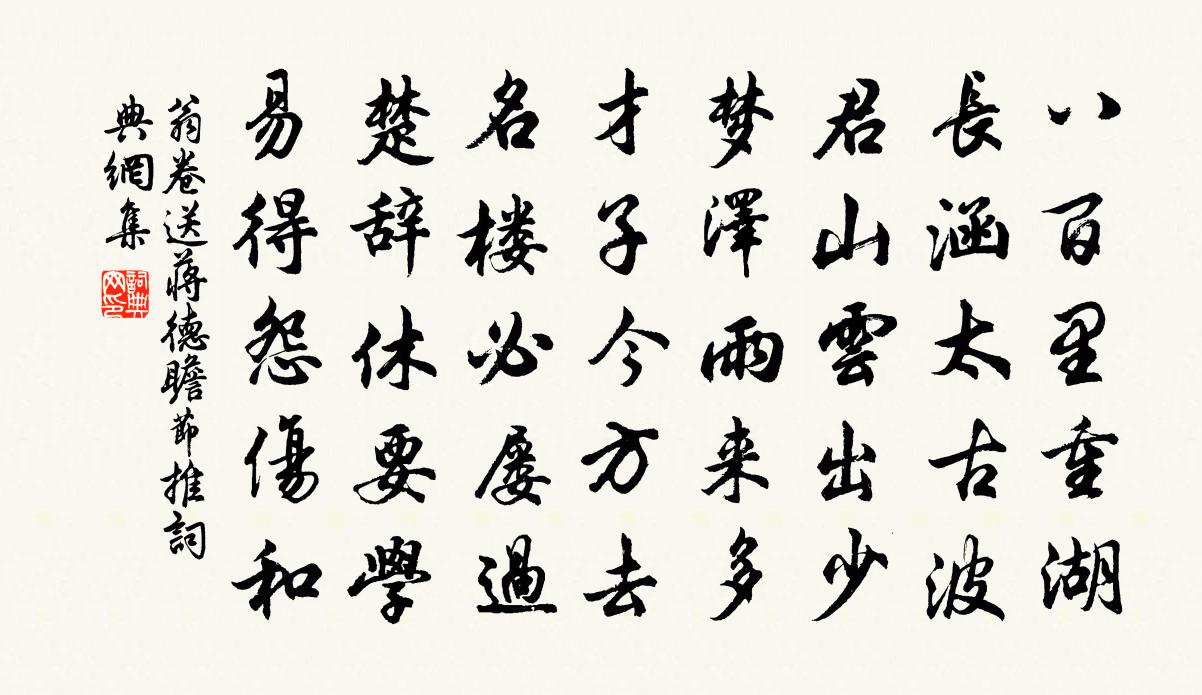 八百里重湖
長涵太古波
君山雲出少
梦澤雨来多
才子今方去
名楼必屡過
楚辞休要學
易得怨傷和
翁卷送蒋德瞻節推詞
典網集
詞典網印